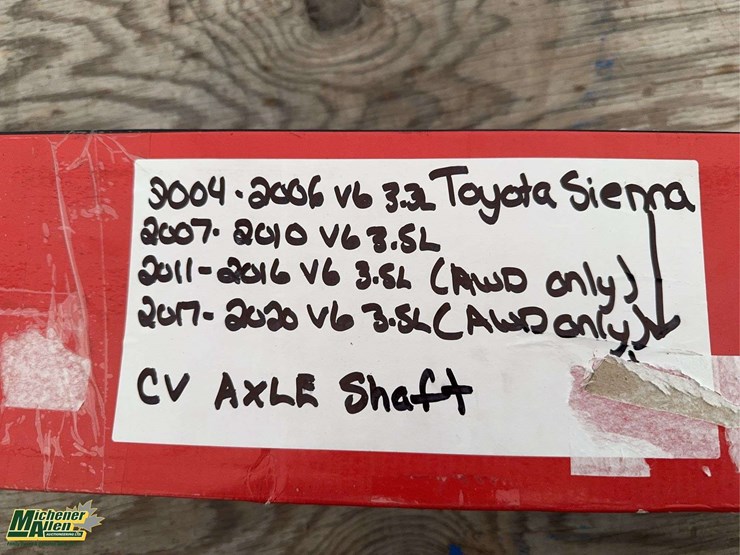 2004-2006 V6 3.3L Toyota Sienna
2007-2010 V6 3.5L
2011-2016 V6 3.5L (AWD only)
2017-2020 V6 3.5L (AWD only)
CV AXLE Shaft
Michener
Allen
AUCTIONEERING LTD.